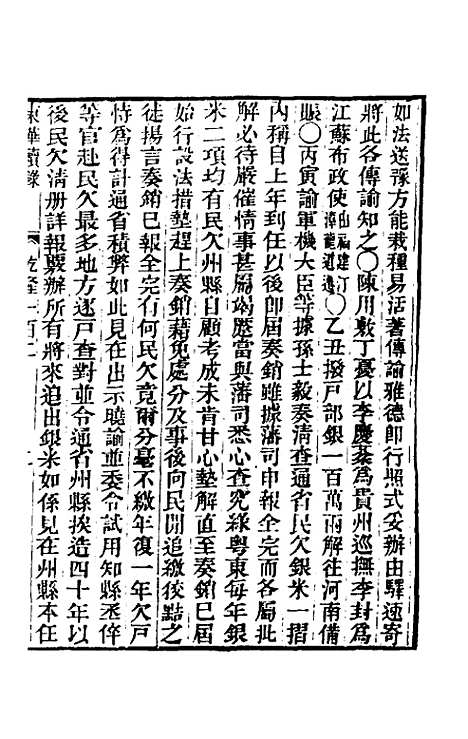 如法送豫方能栽種易活著傳諭雅德即行照式妥辦由驛速寄
將此各傳諭知之○陳用敷丁憂以李慶棻爲貴州巡撫李封爲
江蘇布政使由福建汀漳龍道遷○乙丑撥戶部銀一百萬兩解往河南備
賑○丙寅諭軍機大臣等據孫士毅奏清查通省民欠銀米一摺
內稱自上年到任以後即屆奏銷雖據藩司申報全完而各屬批
解必待嚴催情事甚屬竭蹷當與藩司悉心查究緣粵東每年銀
米二項均有民欠州縣自顧考成未肯甘心墊解直至奏銷已屆
始行設法措墊趕上奏銷藉免處分及事後向民閒追繳狡黠之
徒揚言奏銷已報全完有何民欠竟爾分毫不繳年復一年欠戶
恃爲得計通省積弊如此見在出示曉諭並委令試用知縣丞倅
等官赴民欠最多地方逐戶查對並令通省州縣挨造四十年以
後民欠清册詳報覈辦所有將來追出銀米如係見在州縣本任
東華續錄　乾隆一百二